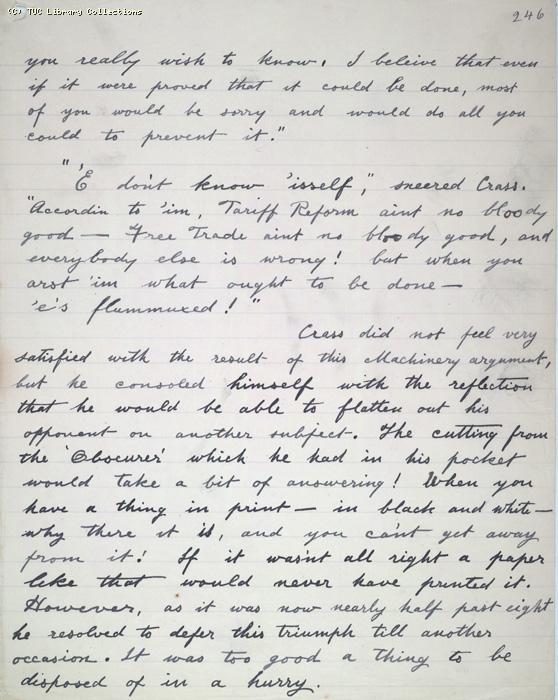 (C) TUC Library Collections
246
you really wish to know. I beleive that even
if it were proved that it could be done, most
of you would be sorry and would do all you
could to prevent it."
"'E don't know 'isself," sneered Crass.
"Accordin to 'im, Tariff Reform aint no bloody
good — Free Trade aint no bloody good, and
everybody else is wrong! but when you
arst 'im what ought to be done —
'e's flummuxed!"
Crass did not feel very
satisfied with the result of this Machinery argument,
but he consoled himself with the reflection
that he would be able to flatten out his
opponent on another subject. The cutting from
the 'Obscurer' which he had in his pocket
would take a bit of answering! When you
have a thing in print — in black and white —
why there it is, and you can't get away
from it! If it wasn't all right a paper
like that would never have printed it.
However, as it was now nearly half past eight
he resolved to defer this triumph till another
occasion. It was too good a thing to be
disposed of in a hurry.